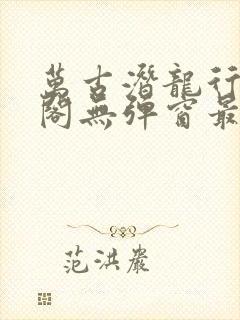 萬古潛龍行
閣無彈窗最
范洪巖